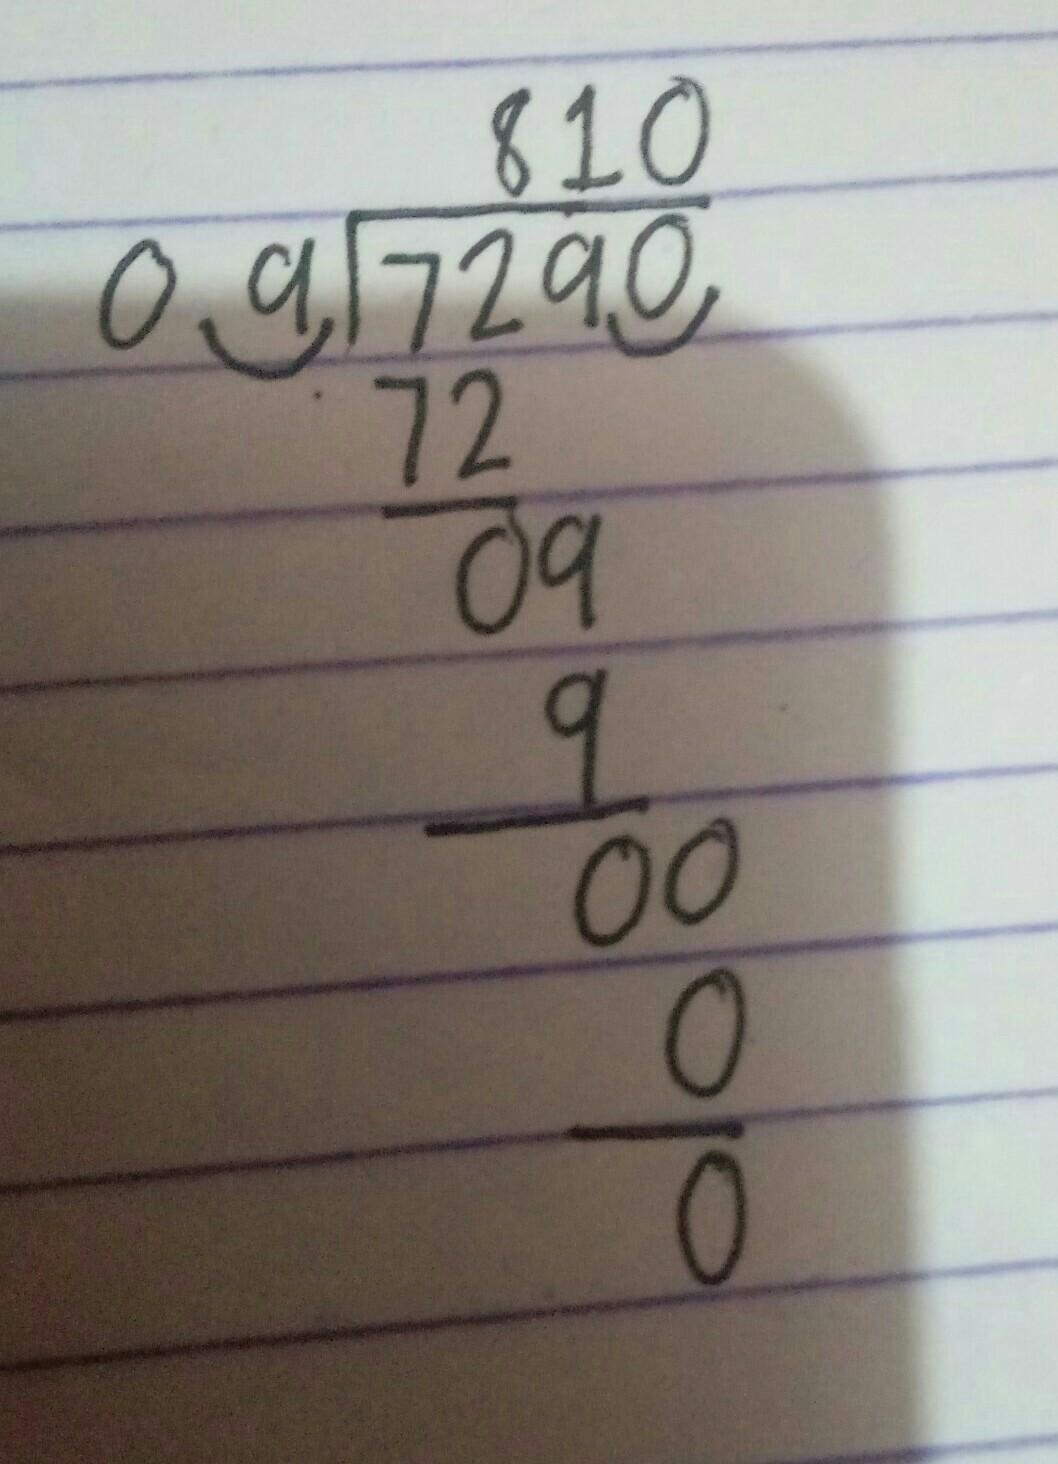 810
0.9.|7290.
72
09
9
00
0
0